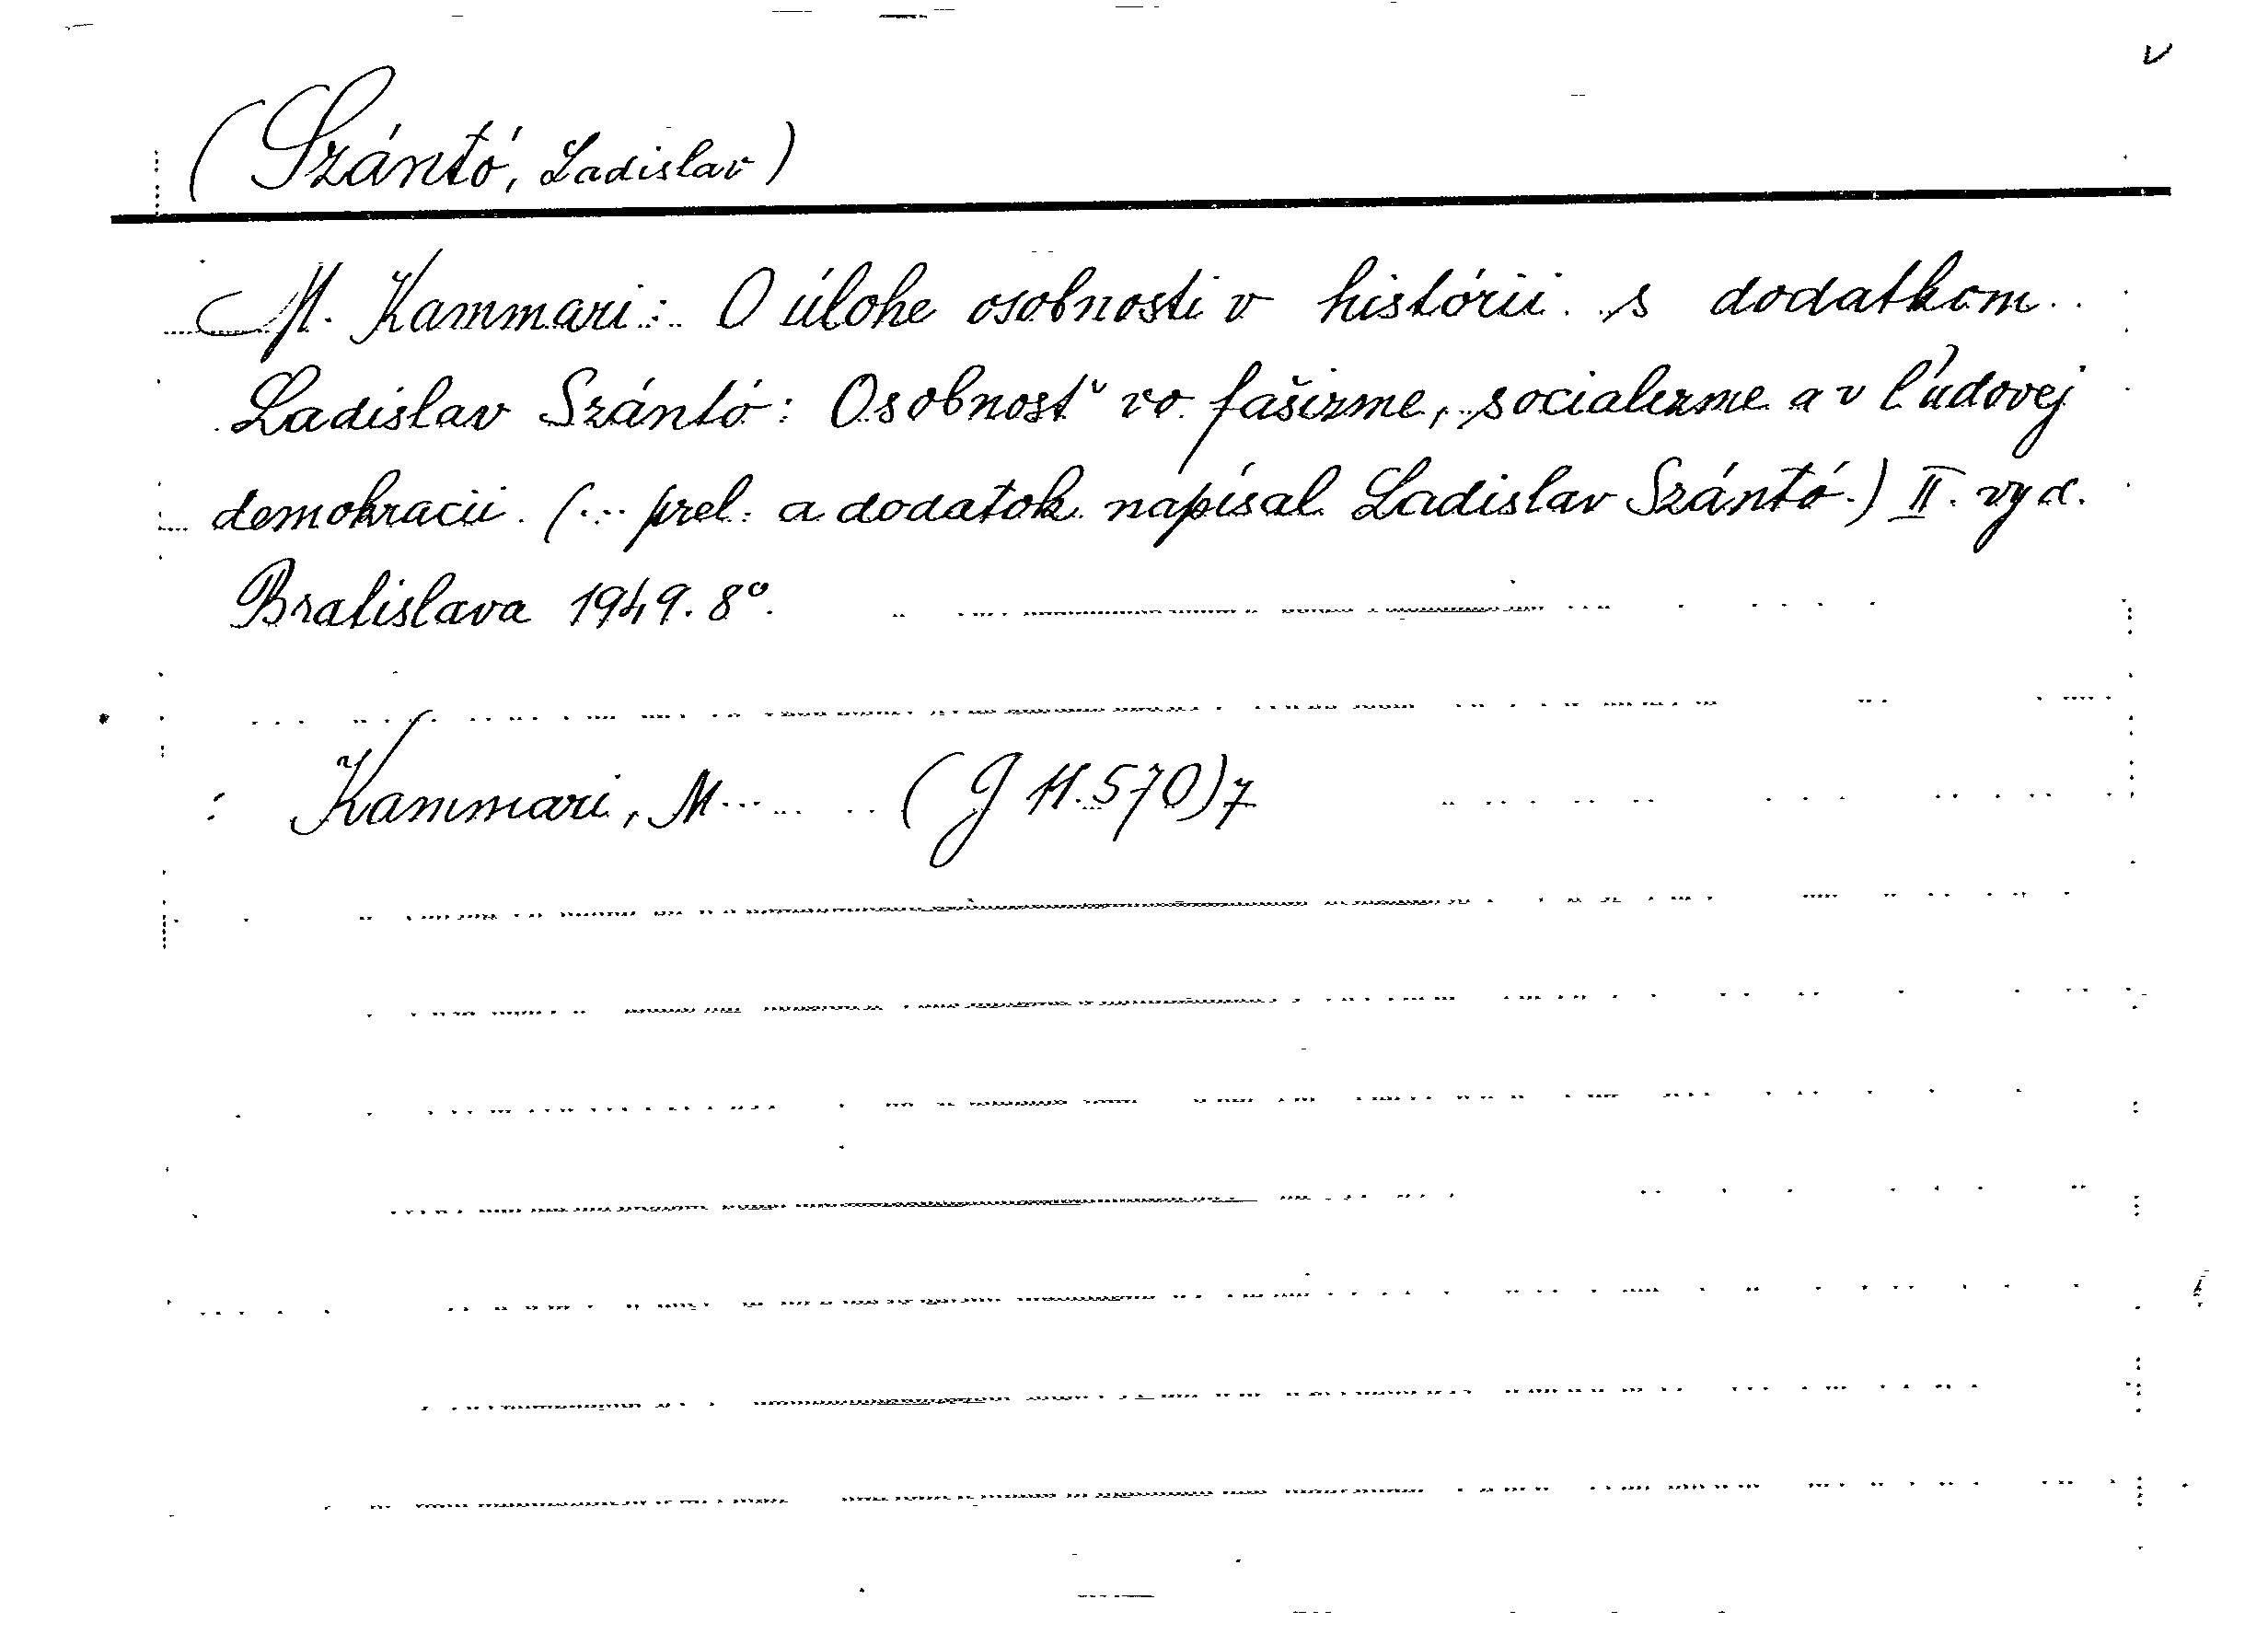 v
(Szántó, Ladislav)
M. Kammari: O úlohe osobnosti v histórii s dodatkom
Ladislav Szántó: Osobnosť vo fašizme, socializme a v ľudovej
demokracii. (... prel. a dodatok napísal Ladislav Szántó.) II. vyd.
Bratislava 1949. 8°.
Kammari, M... (G 11.570)7